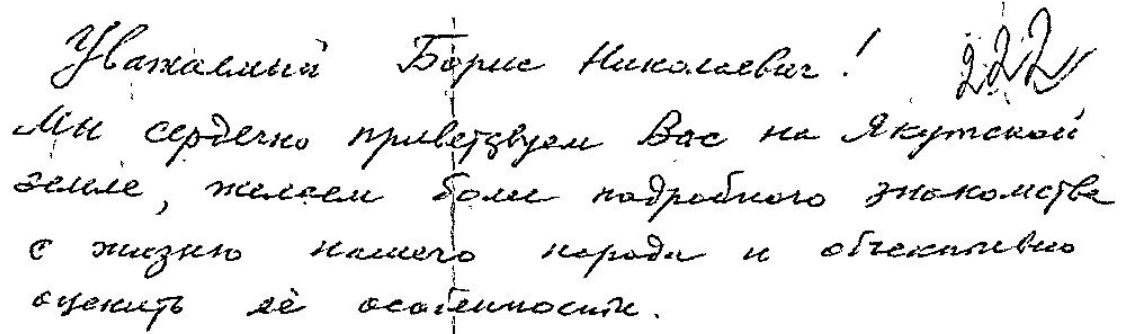 Уважаемый Борис Николаевич! 222
Мы сердечно приветствуем Вас на Якутской
земле, желаем более подробного знакомства
с жизнью нашего народа и объективно
оценить её особенности.